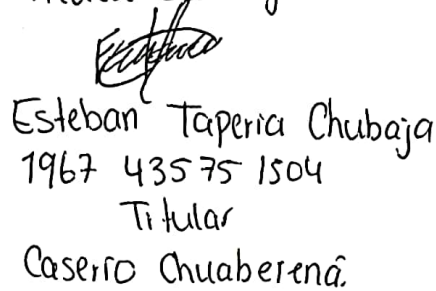 Esteban Taperia Chubaja
1967 43575 1504
Titular
Caserío Chuaberená.